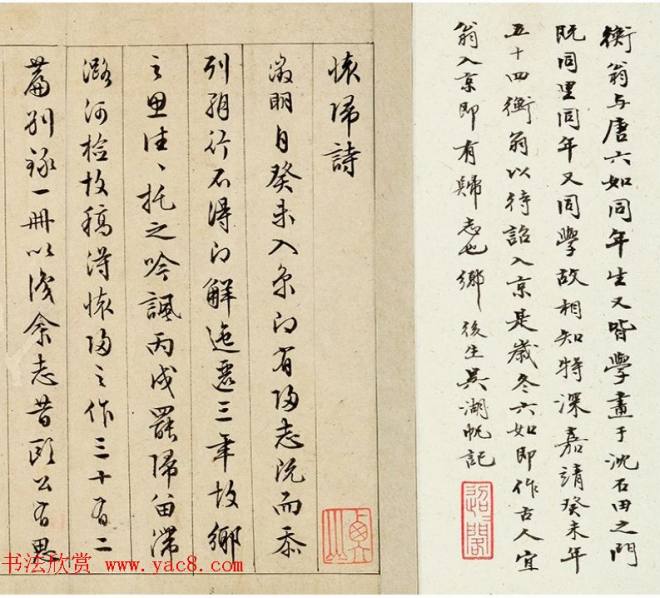 衡翁与唐六如同年生又皆學畫于沈石田之門
既同里同年又同學故相知特深嘉靖癸未年
五十四衡翁以待詔入京是歲冬六如即作古人宜
翁入京即有歸志也鄉後生吳湖帆記
懷歸詩
徵明自癸未入京即有歸志既而忝
列朝行不得即解迤邐三年故鄉
之思往々托之吟諷丙戌罷歸留滯
潞河檢故稿得懷歸之作三十有二
篇別錄一冊以識余志昔歐公有思
书法欣赏 www.yac8.com